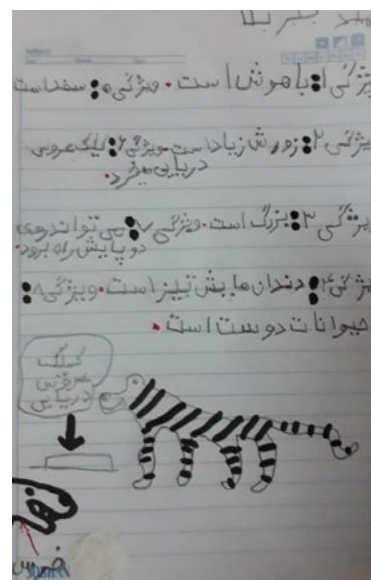 ویژگی ۱: باهوش است. ویژگی ۵: سفت است
ویژگی ۲: زورش زیاد است. ویژگی ۶: کیک عروس
دریایی میخرد.
ویژگی ۳: بزرگ است. ویژگی ۷: می تواند روی
دو پایش راه برود.
ویژگی ۴: دندان هایش تیز است. ویژگی ۸:
حیوانات دوست است.
کیک
عروس
دریایی